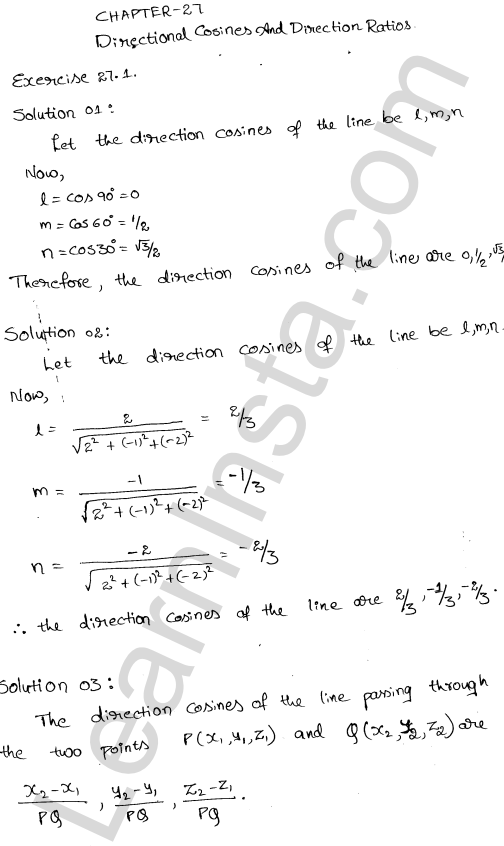 CHAPTER-27
Directional Cosines And Direction Ratios.
Exercise 27.1.
Solution 01:
Let the direction cosines of the line be l,m,n
Now,
l = cos 90° = 0
m = cos 60° = 1/2
n = cos 30° = √3/2
Therefore, the direction cosines of the line are 0, 1/2, √3/
Solution 02:
Let the direction cosines of the line be l,m,n.
Now,
l = 2/√(2² + (-1)² + (-2)²) = 2/3
m = -1/√(2² + (-1)² + (-2)²) = -1/3
n = -2/√(2² + (-1)² + (-2)²) = -2/3
∴ the direction cosines of the line are 2/3, -1/3, -2/3.
Solution 03:
The direction cosines of the line passing through
the two points P(x₁, y₁, z₁) and Q(x₂, y₂, z₂) are
x₂-x₁/PQ, y₂-y₁/PQ, z₂-z₁/PQ.
LearnInsta.com